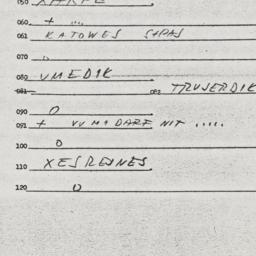 050
060 + ....
061 KATOWES STPAS
070 0
080 VMEDIK
081 082 TRUSERDIK
090 0
091 + VV M DARF NIT .....
100 0
110 XESREJNES
120 0